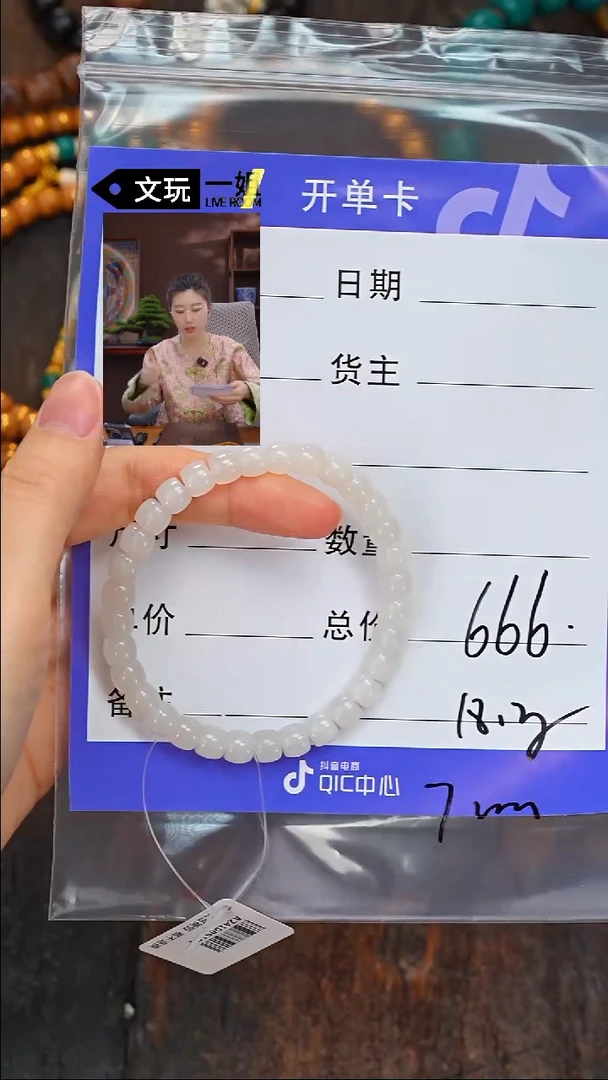 文玩 一姐
LIVE ROOM
开单卡
日期
货主
尺寸 数量
单价 总价 666.
备注 18.2g
抖音电商
QIC中心
7mm